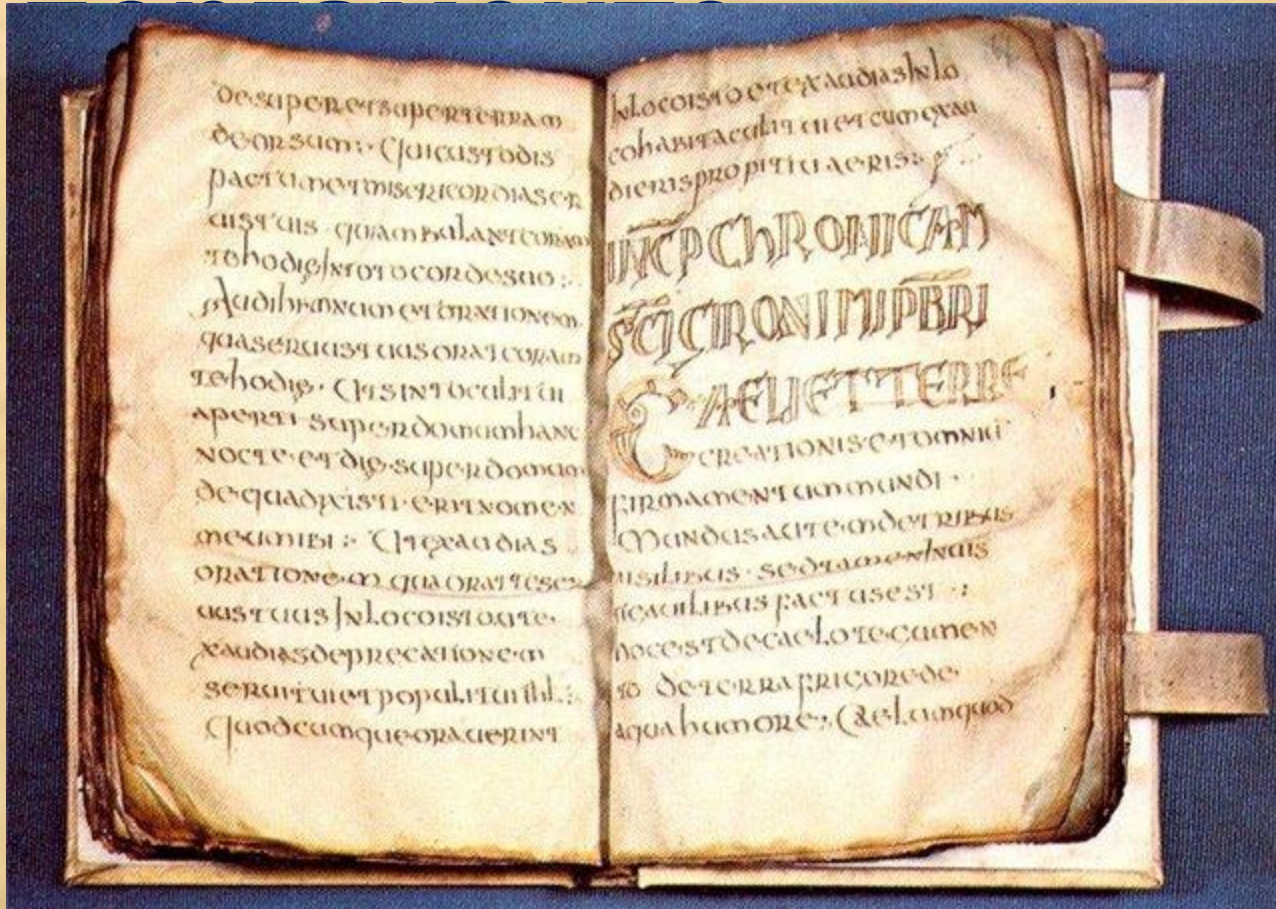 desuper et super terram
deorsum :· Qui custodis
pactum et misericordias er
uis tuis · qu ambulant coram
te hodie in toto corde suo :·
Audi hymnum et orationem
qua seruus tuus orat coram
te hodie · Ut sint oculi tui
aperti super domum hanc
nocte et die super domum
de qua dixisti · erit nomen
meum ibi :· Ut exaudias
orationem qua orat te ser
uus tuus in loco isto et e
xaudias deprecationem
serui tui et populi tui ihl :·
Quodcumque orauerint
in loco isto et exaudias in lo
co habitaculi tui et cum exau
dieris propitiu aeris :·
INCP CHRONICAM
SCI CIRONIMI PBRI
CAELI ET TERRE
creationis et omniu
firmamentum mundi ·
Mundus autem de tribus
uisilibus · sed tamen
factus est ·:
hoc est de caelo te cumen
to de terra fricore de
aqua humore :· Caelum quod